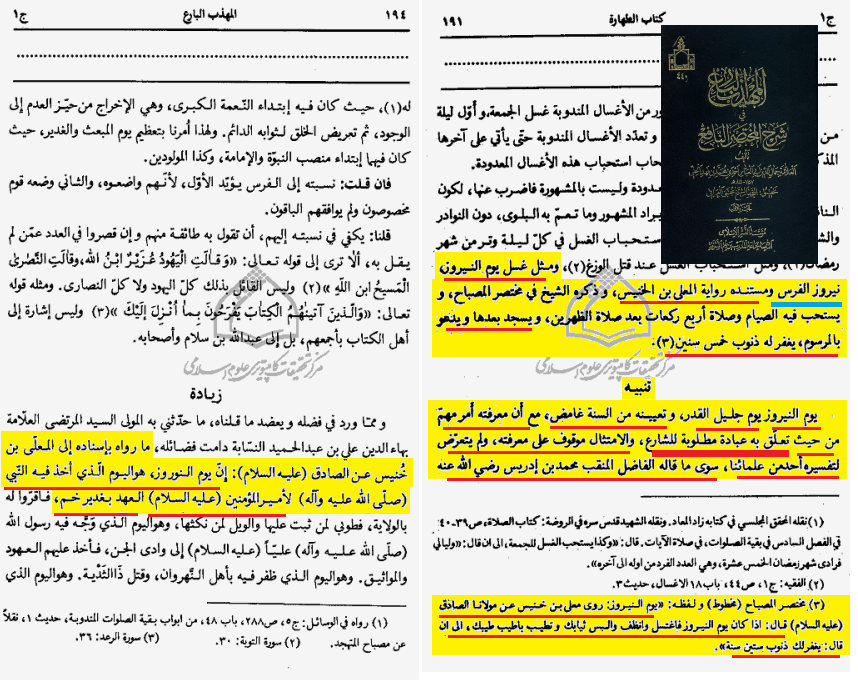 ج١
كتاب الطهارة
١٩١
ور من الأغسال المندوبة غسل الجمعة، و أوّل ليلة
من
و تعدّد الأغسال المندوبة حتّى يأتي على آخرها
المذك
حاب استحباب هذه الأغسال المعدودة.
عدودة وليست بالمشهورة فاضرب عنها، لكون
الـنـاف
يراد المشهور وما تعمّ به البلوى، دون النوادر
والش
ستحباب الغسل في كلّ ليلة وتر من شهر
رمضان
الغسل عند قتل الوزغ(٢)، ومثل غسل يوم النيروز،
نيروز الفرس ومستنده رواية المعلى بن الخنيس، و ذكره الشيخ في مختصر المصباح، و
يستحب فيه الصيام وصلاة أربع ركعات بعد صلاة الظهرين، و يسجد بعدها و يدعو
بالمرسوم، يغفر له ذنوب خمس سنين(٣).
تنبيه
يوم النيروز يوم جليل القدر، و تعيينه من السنة غامض، مع أن معرفته أمر مهمّ
من حيث تعلّق به عبادة مطلوبة للشارع، والامتثال موقوف على معرفته، ولم يتعرّض
لتفسيره أحد من علمائنا، سوى ما قاله الفاضل المنقب محمد بن إدريس رضي الله عنه
(١) نقله المحقق المجلسي في كتابه زاد المعاد. ونقله الشهيد قدس سره في الروضة: كتاب الصلاة، ص٣٩ـ٤٠
في الفصل السادس في بقية الصلوات، في صلاة الآيات. قال: «وكذا يستحب الغسل للجمعة، الى ان قال: «وليالي
فرادى شهر رمضان الخمس عشرة، وهي العدد الفرد من اوله الى آخره».
(٢) الفقيه: ج١، ص٤٤، باب١٨ الاغسال، حديث٣.
(٣) مختصر المصباح (مخطوط) و لفظه: «يوم النيروز: روى معلى بن خنيس عن مولانا الصادق
(عليه السلام) قال: اذا كان يوم النيروز فاغتسل وانظف والبس ثيابك و تطيب باطيب طيبك، الى ان
قال: يغفر لك ذنوب ستين سنة».
المهذب البارع
في
شرح المختصر النافع
تأليف
١٩٤
المهذب البارع
ج١
له(١)، حيث كان فيه إبتداء النّعمة الكبرى، وهي الإخراج من حيّز العدم إلى
الوجود، ثم تعريض الخلق لثوابه الدائم. ولهذا اُمرنا بتعظيم يوم المبعث والغدير، حيث
كان فيهما إبتداء منصب النبوّة والإمامة، وكذا المولودين.
فان قلت: نسبته إلى الفرس يؤيّد الأوّل، لأنّهم واضعوه، والثاني وضعه قوم
مخصوصون ولم يوافقهم الباقون.
قلنا: يكفي في نسبته إليهم، أن تقول به طائفة منهم و إن قصروا في العدد عمّن لم
يقل به، ألا ترى إلى قوله تعالى: «وَقـالَتِ الْيَهُودُ عُزَيْرٌ ابْنُ اللهِ، وقالَتِ النَّصٰرىٰ
الْمَسيحُ ابن اللّهِ»(٢) وليس القائل بذلك كلّ اليهود ولا كلّ النصارى. ومثله قوله
تعالى: «وَالَّذينَ آتيناهُمُ الْكِتابَ يَفْرَحُونَ بِمـا اُنْزِلَ إلَيْكَ»(٣) وليس إشارة إلى
أهل الكتاب بأجمعهم، بل إلى عبدالله بن سلام وأصحابه.
زيادة
و ممّا ورد في فضله و يعضد ما قلناه، ما حدّثني به المولى السيد المرتضى العلامة
بهاء الدين علي بن عبدالحميد النسّابة دامت فضائله، ما رواه بإسناده إلى المعلّى بن
خُنيس عن الصادق (عليه السلام): إنّ يوم النوروز، هو اليوم الّذي أخذ فيه النّبي
(صلّى الله عليه وآله) لأمير المؤمنين (عليه السلام) العهد بغدير خم، فاقرّوا له
بالولاية، فطوبى لمن ثبت عليها والويل لمن نكثها، وهو اليوم الذي وجّه فيه رسول الله
(صلّى الله عليه وآله) عليّاً (عليه السلام) إلى وادي الجن، فأخذ عليهم العهود
والمواثيق. وهو اليوم الذي ظفر فيه بأهل النّهروان، وقتل ذا الثّديّة. وهو اليوم الذي
(١) رواه في الوسائل: ج٥، ص٢٨٨، باب ٤٨، من ابواب بقية الصلوات المندوبة، حديث ١، نقلاً
عن مصباح المتهجد.
(٢) سورة التوبة: ٣٠.
(٣) سورة الرعد: ٣٦.
مركز تحقيقات كامپيوتری علوم اسلامی
مركز تحقيقات كامپيوتری علوم اسلامی